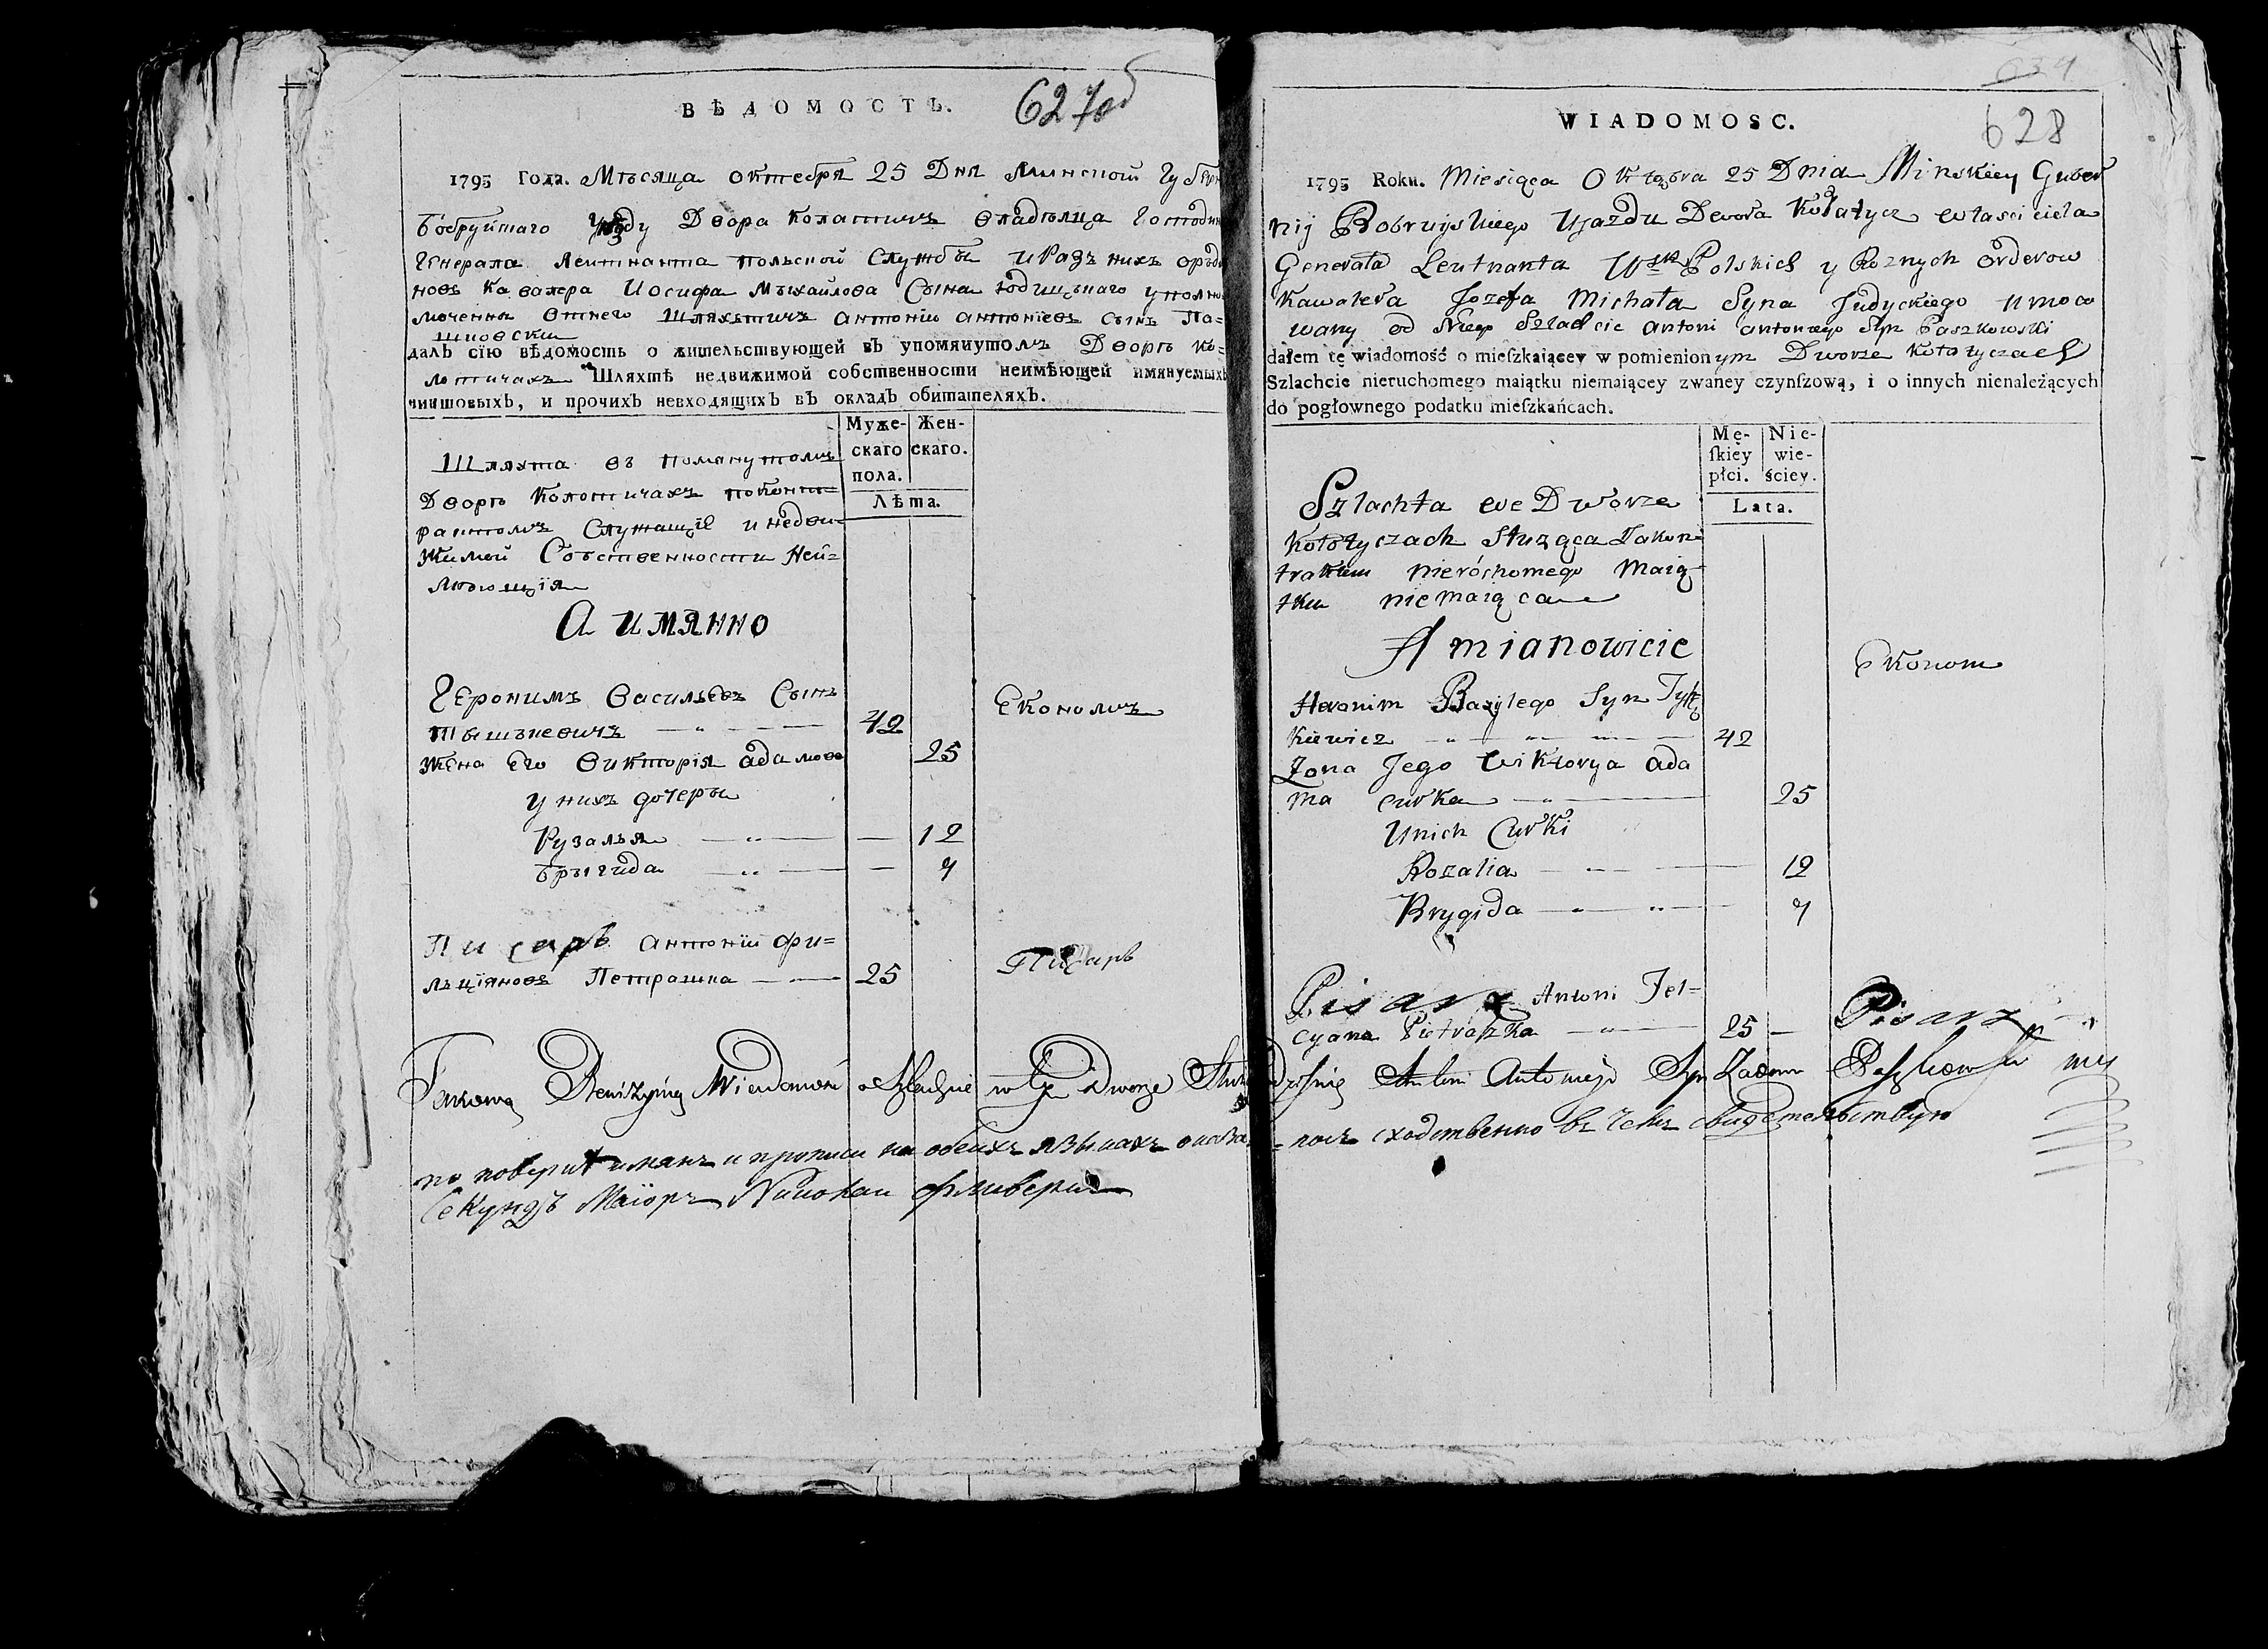 ВѢДОМОСТЬ. 627об
1795 Года. Мѣсяца октебря 25 Дня Минской Губерн
Бобруйшаго Уѣзду Двора Колатичъ владѣлца Господин
Генерала Леитнанта польской Службы и Разъ нихъ орьде
новъ Кавалера Иосифа Мыхайлова Сына Юдицькаго уполно
моченны отнего Шляхьтичъ антоніи антоніевъ сынъ Па=
шковски
далъ сїю вѣдомость о жительствующей въ упомянутомъ Дворѣ Ко=
лотичахъ Шляхтѣ недвижимой собственности неимѣющей имянуемыхъ
чиншовыхъ, и прочихъ невходящихъ въ окладъ обитателяхъ.
Муже- Жен-
скаго скаго.
пола.
Лѣта.
Шляхта въ помянутомъ
Дворѣ Колотичахъ поконт=
рактомъ Служащіе и недви=
жимой Собственности Неи=
мѣющія
А имянно
Героним Васильевъ Сынъ
Тышькевичъ 42 Економъ
жена Его Викторія адамова 25
у нихъ дочеры
Рузалья — 12
Брыгида — 7
Писарь антоніи фи=
льціяновъ Петрашка 25 Писарь
WIADOMOSC. 634
628
1795 Roku. Miesiąca Oktobra 25 Dnia Minskiey Guber
nij Bobruyskiego Ujazdu Dwora Kołatycz własciciela
Generała Leutnanta Wsk Polskich y Roznych Orderow
Kawalera Jozefa Michała Syna Judyckiego umoco
wany od Niego Szlachcic Antoni Antoniego Syn Paszkowski
dałem tę wiadomość o mieſzkaiącey w pomienionym Dworze Kołotyczach
Szlachcie nieruchomego maiątku niemaiącey zwaney czynſzową, i o innych nienależących
do pogłownego podatku mieſzkańcach.
Mę- Nie-
ſkiey wie-
płci. ściey.
Lata.
Szlachta we Dworze
Kołotyczach Służąca Zakon=
traktem nieróchomego Maią=
tku niemaiąca
A mianowicie
Heronim Bazylego Syn Tysz
kiewicz 42 Ekonom
Zona Jego Wiktorya Ada
ma curka 25
Unich Curki
Rozalia 12
Brygida 7
Pisarz Antoni Fel=
cyana Pietraszka 25 — Pisarz
Takową Rewizyiną Wiadomość o Szlachcie w tym Dworze Antoni Antoniego Syn Paszkowski
по поверки имянъ и прописи на обеихъ языкахъ оказа=лось сходственно въ чемъ свидетельствую
Секундъ Маіоръ Николаи